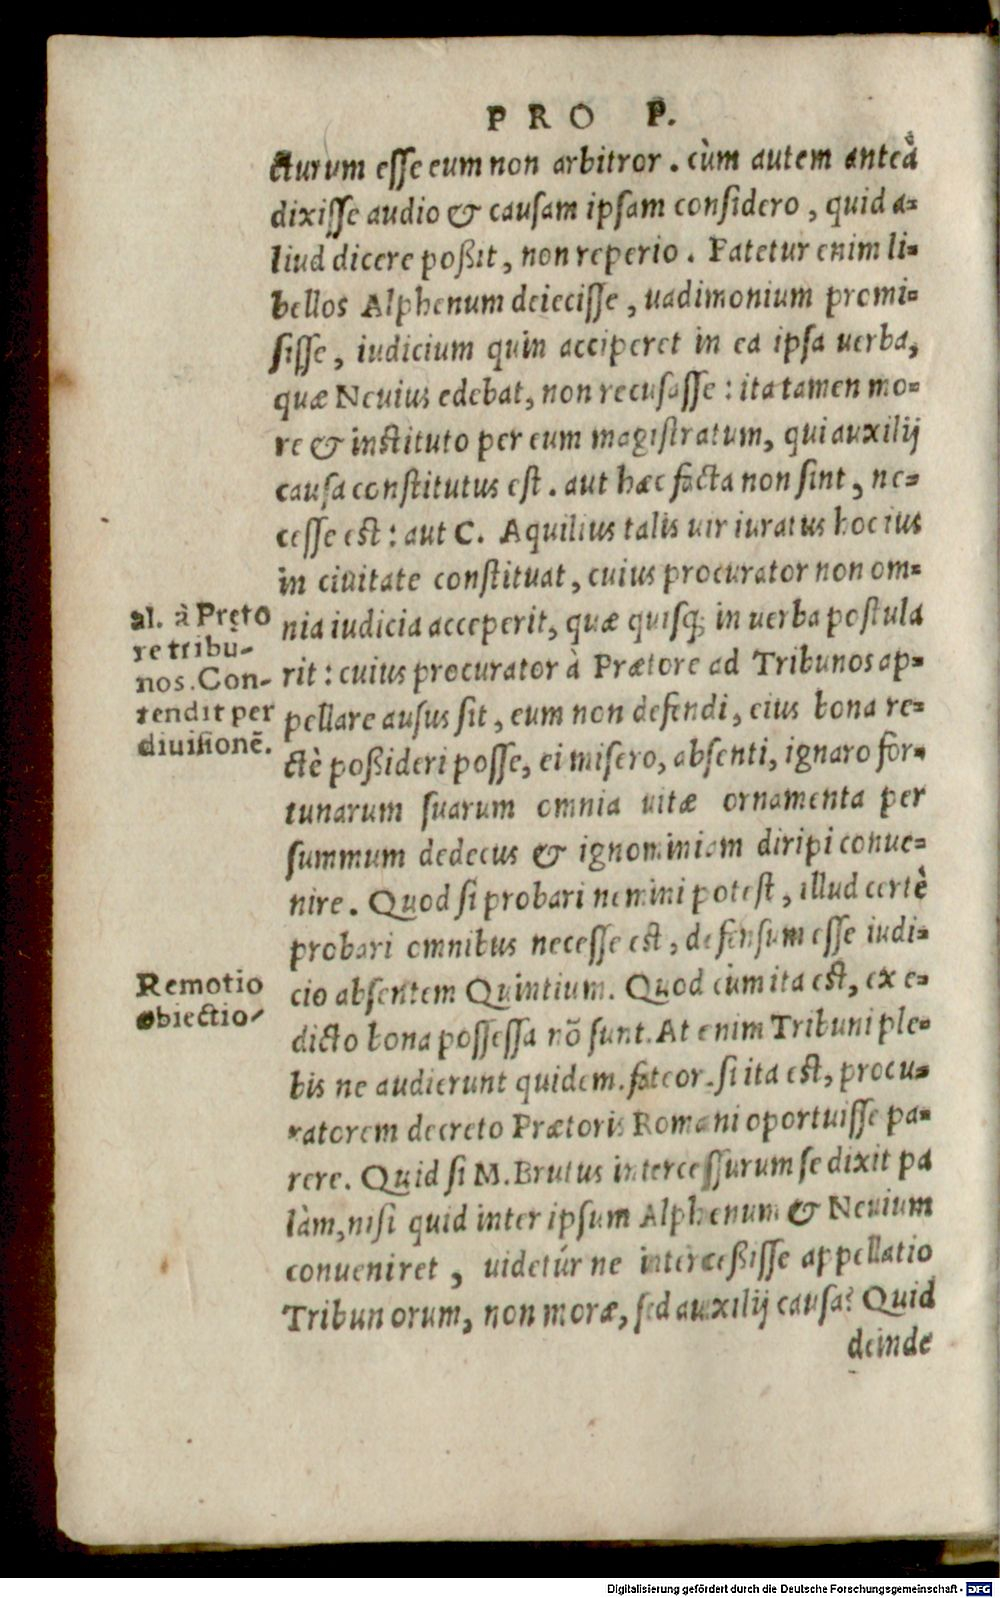 PRO P.
cturum esse eum non arbitror. cùm autem anteà
dixisse audio & causam ipsam considero, quid a-
liud dicere poßit, non reperio. Fatetur enim li-
bellos Alphenum deiecisse, uadimonium promi-
sisse, iudicium quin acciperet in ea ipsa uerba,
quæ Neuius edebat, non recusasse: ita tamen mo-
re & instituto per eum magistratum, qui auxilij
causa constitutus est. aut hæc facta non sint, ne-
cesse est: aut C. Aquilius talis uir iuratus hoc ius
in ciuitate constituat, cuius procurator non om-
nia iudicia acceperit, quæ quisq; in uerba postula
rit: cuius procurator à Prætore ad Tribunos ap-
pellare ausus sit, eum non defendi, eius bona re-
ctè poßideri posse, ei misero, absenti, ignaro for-
tunarum suarum omnia uitæ ornamenta per
summum dedecus & ignominiam diripi conue-
nire. Quod si probari nemini potest, illud certè
probari omnibus necesse est, defensum esse iudi-
cio absentem Quintium. Quod cùm ita est, ex e-
dicto bona possessa nõ sunt. At enim Tribuni ple-
bis ne audierunt quidem. fateor. si ita est, procu-
ratorem decreto Prætoris Romani oportuisse pa-
rere. Quid si M. Brutus intercessurum se dixit pa
làm, nisi quid inter ipsum Alphenum & Neuium
conueniret, uidetúr ne interceßisse appellatio
Tribunorum, non moræ, sed auxilij causa? Quid
deinde
al. à Pręto
re tribu-
nos. Con-
tendit per
diuisionẽ.
Remotio
obiectio-
Digitalisierung gefördert durch die Deutsche Forschungsgemeinschaft - DFG